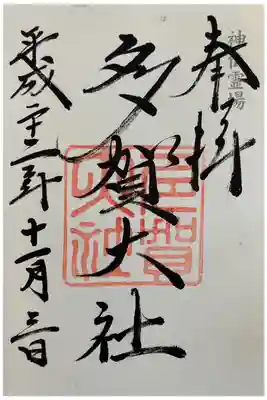 神仏霊場
奉拝
多賀大社
平成二十二年十一月三日